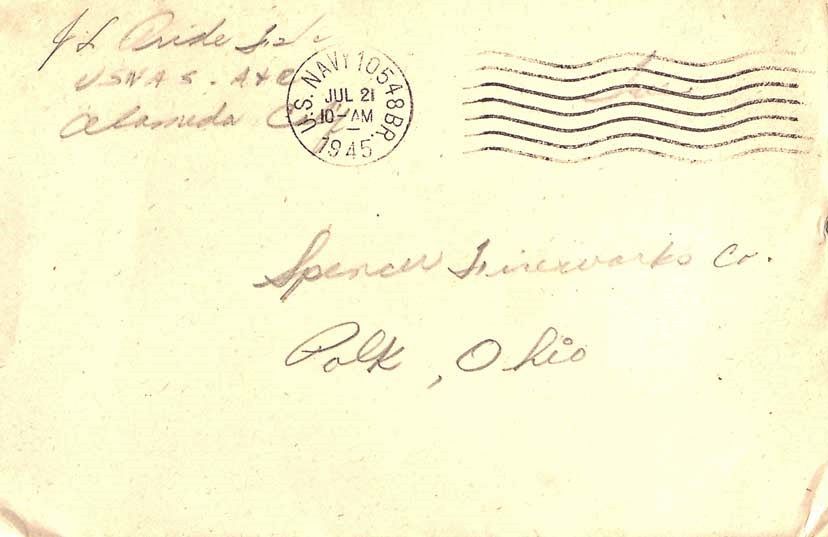 J L Pride
USNAS. A&R
Alameda Calif
U.S. NAVY 10548 BR.
JUL 21
10-AM
1945
Free
Spencer Fireworks Co.
Polk, Ohio